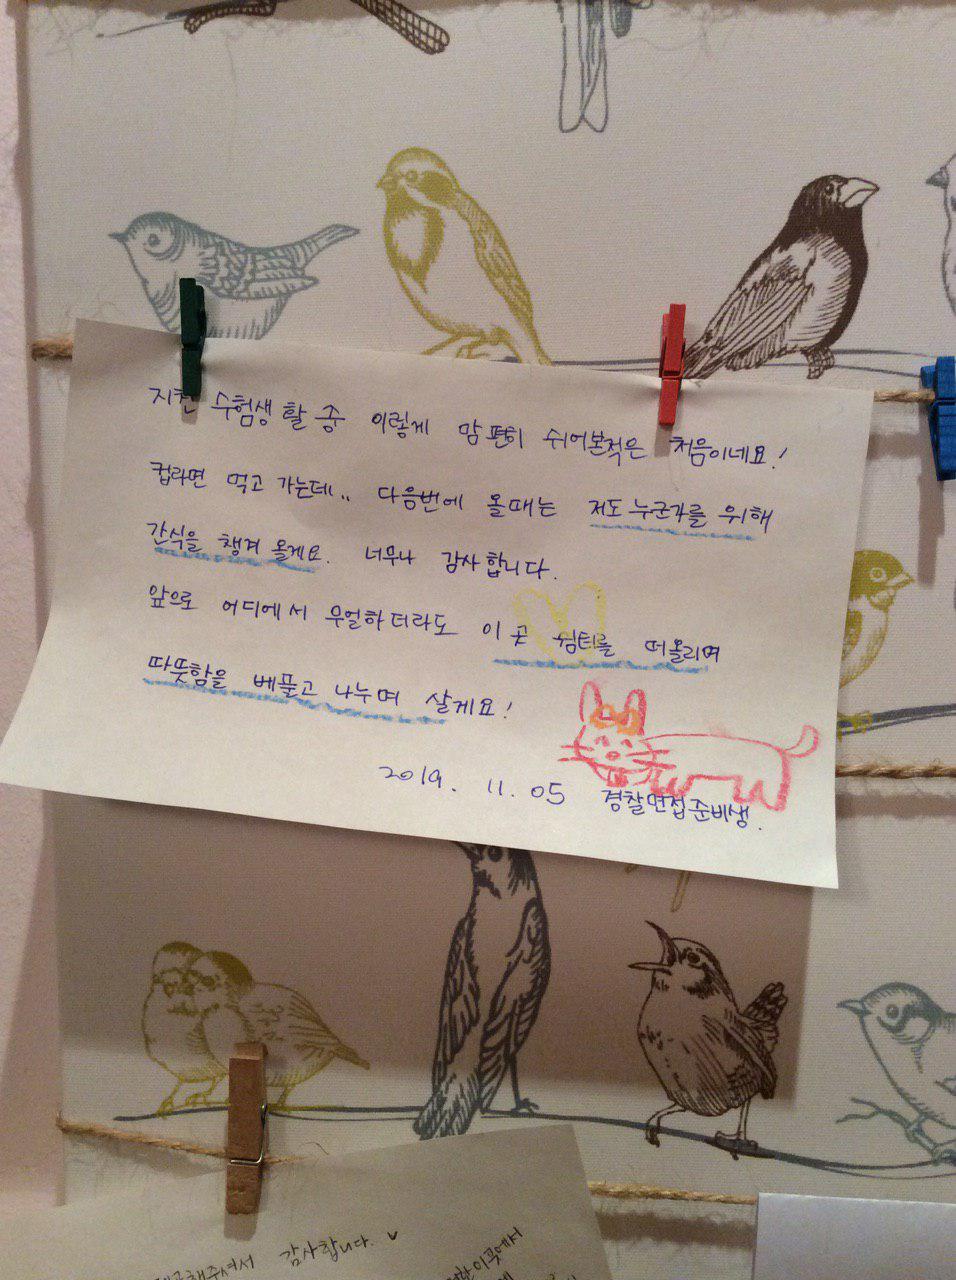 지친 수험생활 중 이렇게 맘 편히 쉬어본적은 처음이네요!
컵라면 먹고 가는데.. 다음번에 올때는 저도 누군가를 위해
간식을 챙겨 올게요. 너무나 감사합니다.
앞으로 어디에서 무얼하더라도 이 곳 쉼터를 떠올리며
따뜻함을 베풀고 나누며 살게요!
2019. 11. 05 경찰면접준비생.
해주셔서 감사합니다.
이곳에서